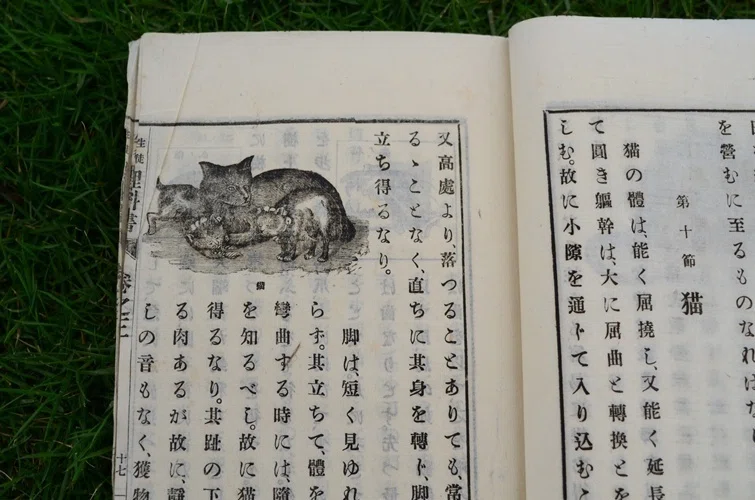 を營むに至るものなればな
第十節 猫
猫の體は、能く屈撓し、又能く延長
て圓き軀幹は、大に屈曲と轉換とを
しむ。故に小隙を通して入り込むこ
又高處より、落つることありても、常
るゝことなく、直ちに其身を轉し、脚
立ち得るなり。
猫
脚は、短く見ゆれ
らす。其立ちて、體を
彎曲する時には、隨
を知るべし。故に猫
得るなり。其趾の下
る肉あるが故に、聲
しの音もなく、獲物
生徒
理科書
卷之三
十七